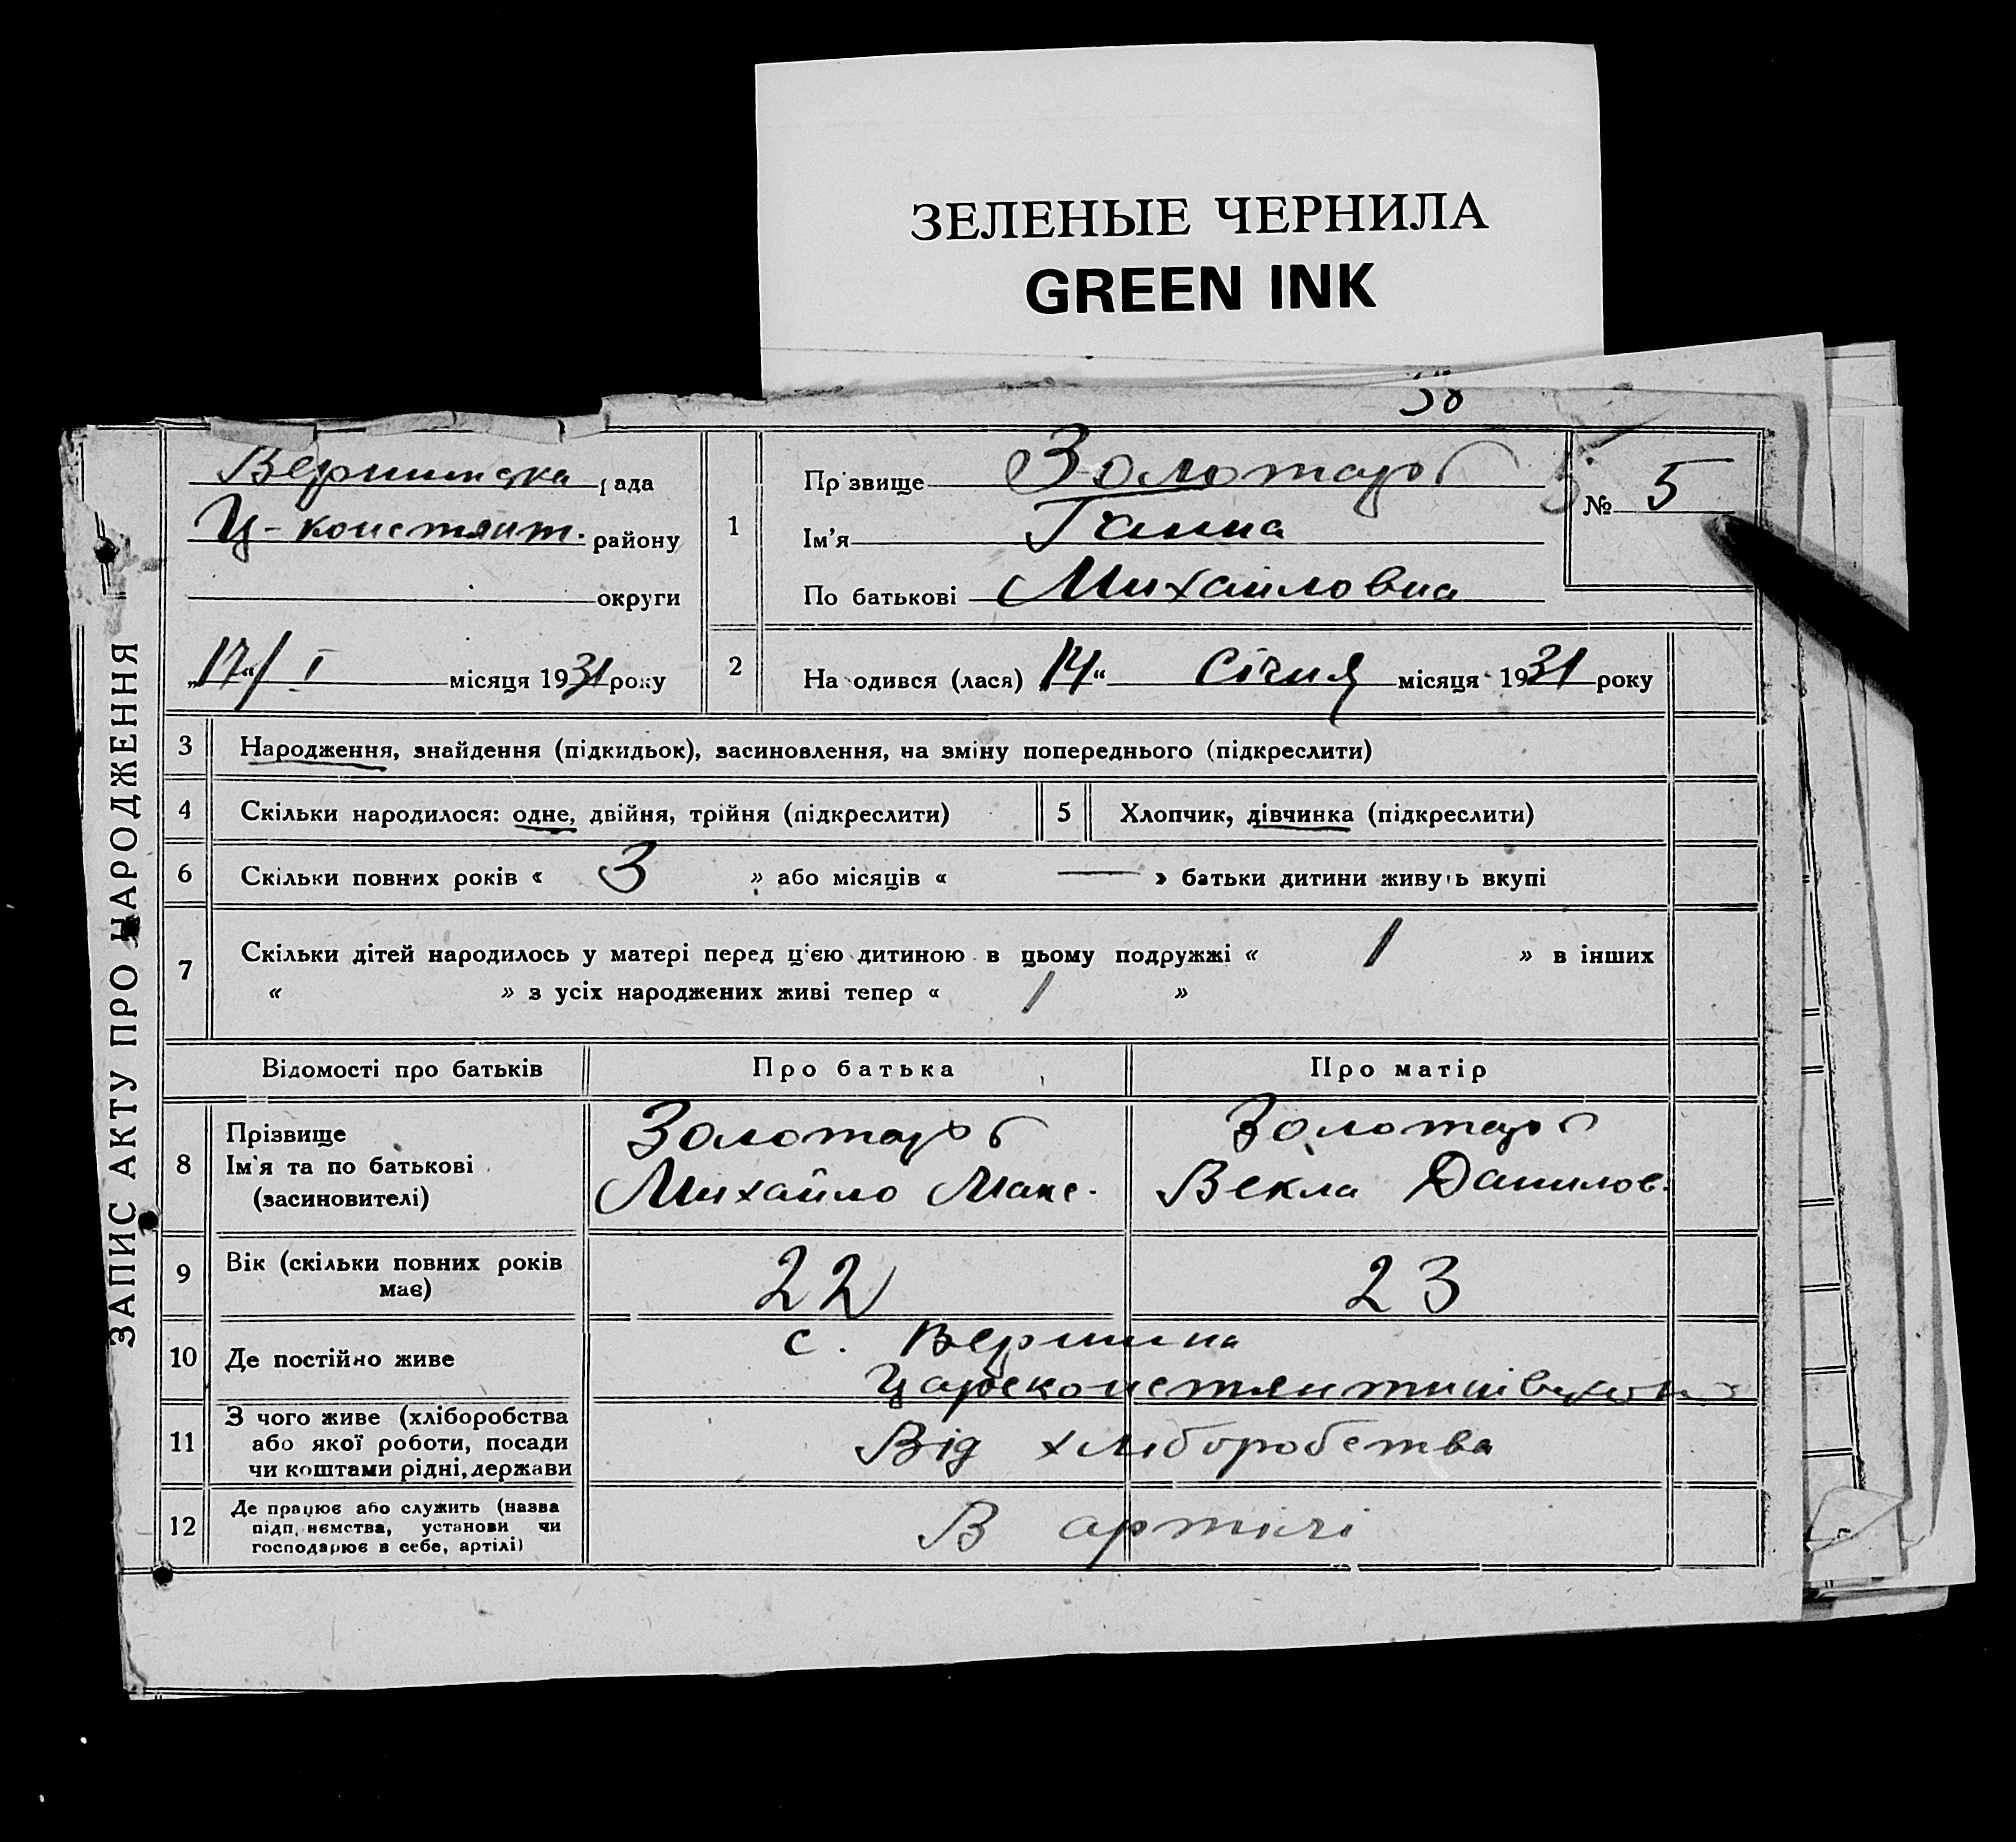 ЗЕЛЕНЫЕ ЧЕРНИЛА
GREEN INK
ЗАПИС АКТУ ПРО НАРОДЖЕННЯ
Вершинська рада
Ц-констянт. району
округи
„17“/ I місяця 1931 року
1
Прізвище Золотарь
Ім'я Ганна
По батькові Михайловна
№ 5
2
Народився (лася) 14“ Січня місяця 1931 року
3 Народження, знайдення (підкидьок), засиновлення, на зміну попереднього (підкреслити)
4 Скільки народилося: одне, двійня, трійня (підкреслити) 5 Хлопчик, дівчинка (підкреслити)
6 Скільки повних років « 3 » або місяців « — » батьки дитини живуть вкупі
7 Скільки дітей народилось у матері перед ц'єю дитиною в цьому подружжі « 1 » в інших
« » з усіх народжених живі тепер « 1 »
Відомості про батьків Про батька Про матір
8 Прізвище Золотарь Золотарь
Ім'я та по батькові Михайло Макс. Векла Данилов.
(засиновителі)
9 Вік (скільки повних років має) 22 23
10 Де постійно живе с. Вершина
11 З чого живе (хліборобства або якої роботи, посади чи коштами рідні, держави Від хліборобства
12 Де працює або служить (назва підприємства, установи чи господарює в себе, артілі) В артілі